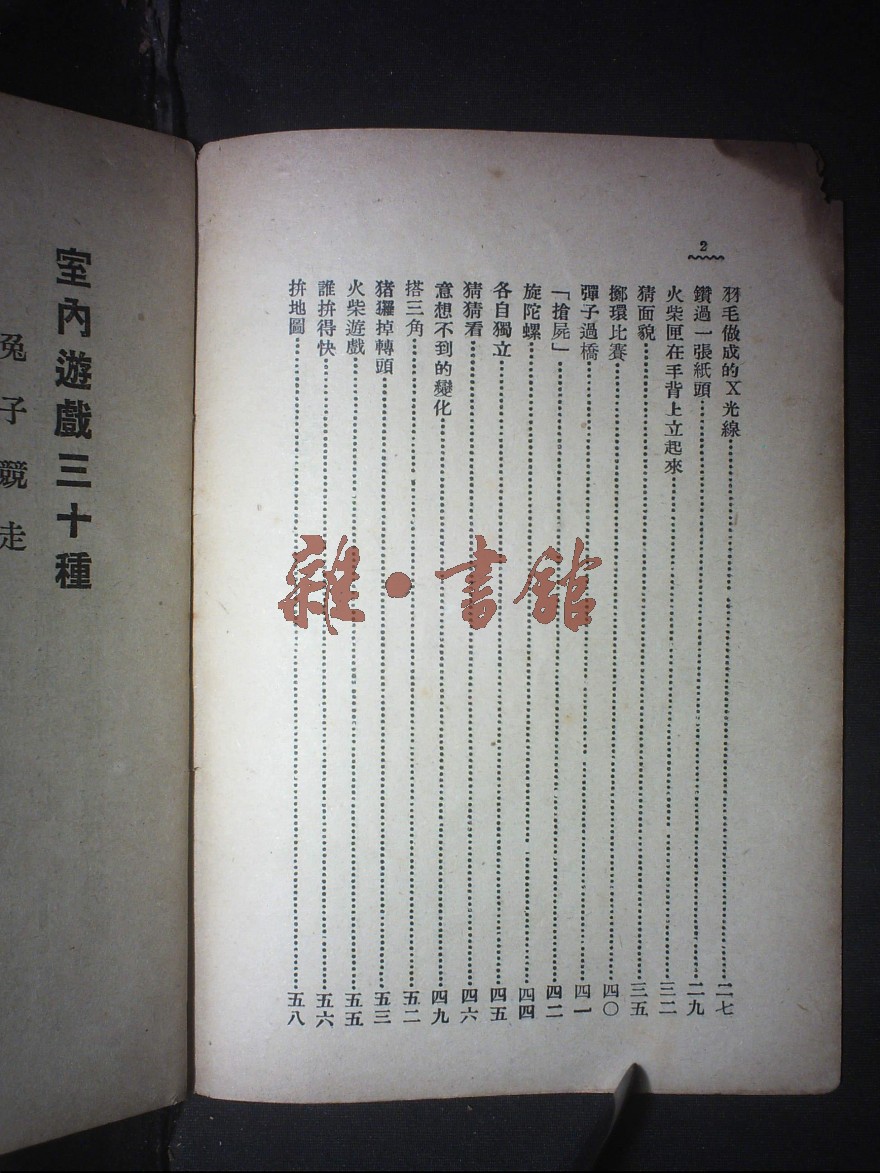 2
羽毛做成的X光線 二七
鑽過一張紙頭 二九
火柴匣在手背上立起來 三二
猜面貌 三五
擲環比賽 四〇
彈子過橋 四一
「搶屍」 四二
旋陀螺 四四
各自獨立 四五
猜猜看 四六
意想不到的變化 四九
搭三角 五二
猪玀掉轉頭 五三
火柴遊戲 五五
誰拚得快 五六
拚地圖 五八
雜·書館
室內遊戲三十種
兔子競走